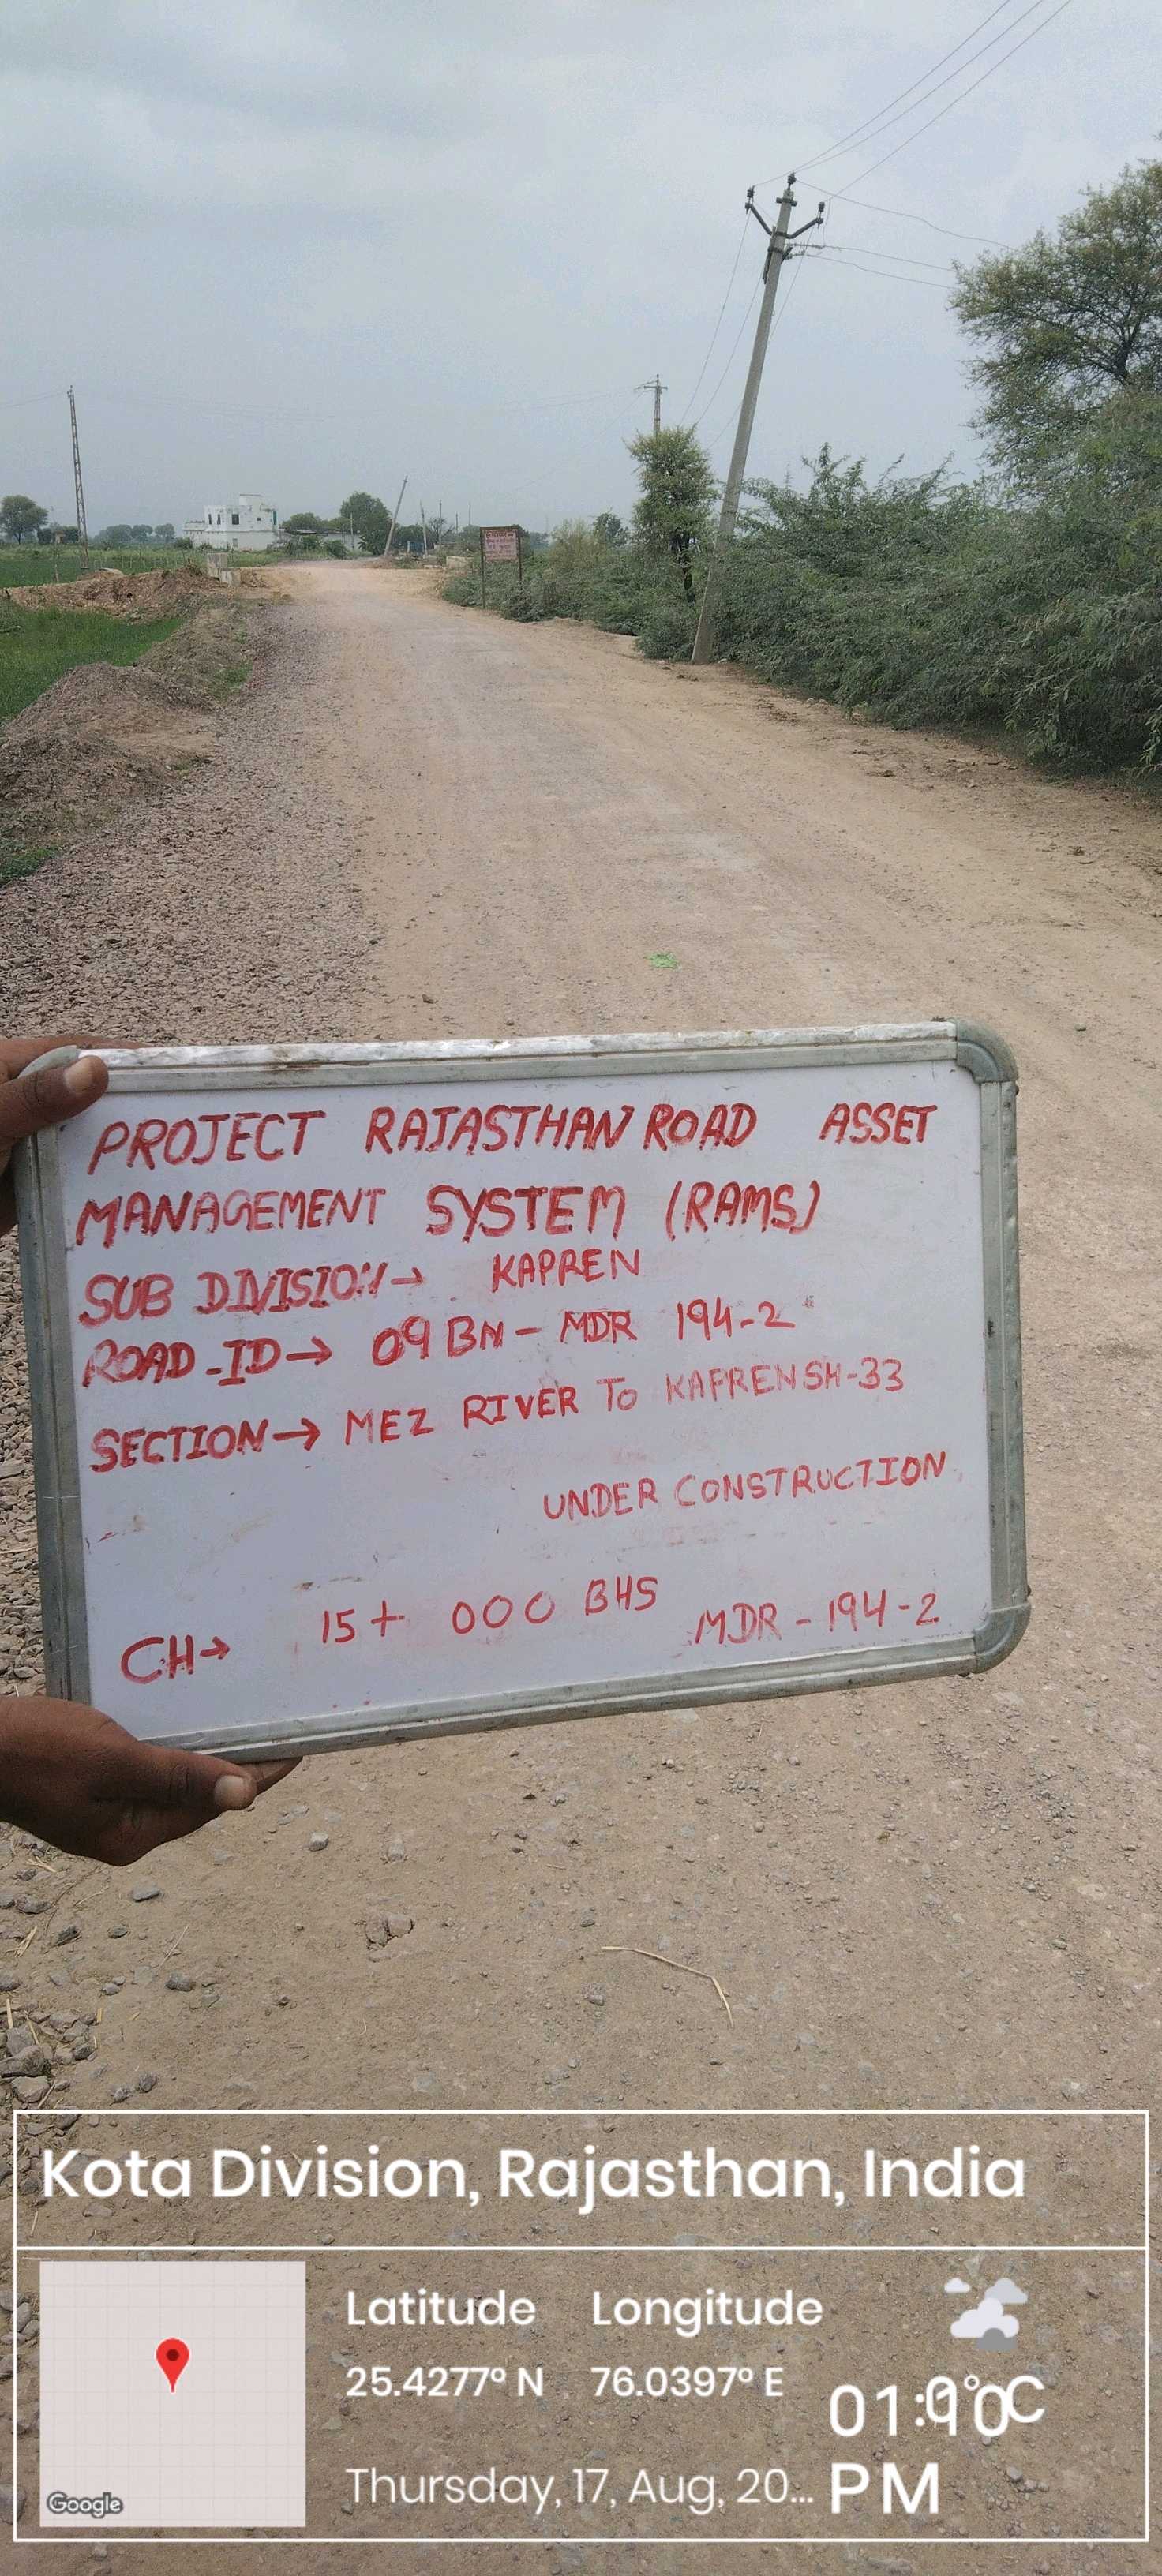 PROJECT RAJASTHAN ROAD ASSET
MANAGEMENT SYSTEM (RAMS)
SUB DIVISION→ KAPREN
ROAD-ID→ 09BN-MDR 194-2
SECTION→ MEZ RIVER TO KAPREN SH-33
UNDER CONSTRUCTION
CH→ 15+ 000 BHS MDR-194-2
Kota Division, Rajasthan, India
Latitude Longitude
25.4277° N 76.0397° E
Thursday, 17, Aug, 20... PM
Google